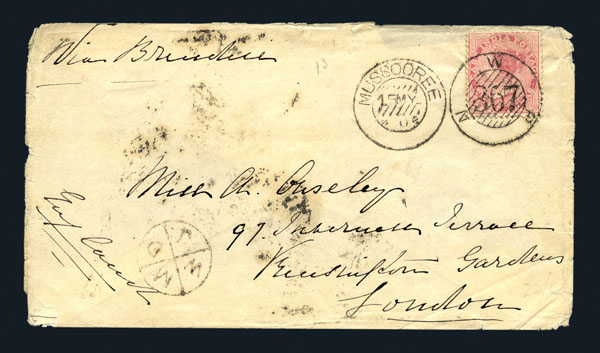 Via Brindisi
MUSSOOREE
15 MY
INDIA POSTAGE
N W P
367
Miss A. Ouseley
97 Inverness Terrace
Kensington Gardens
London
England